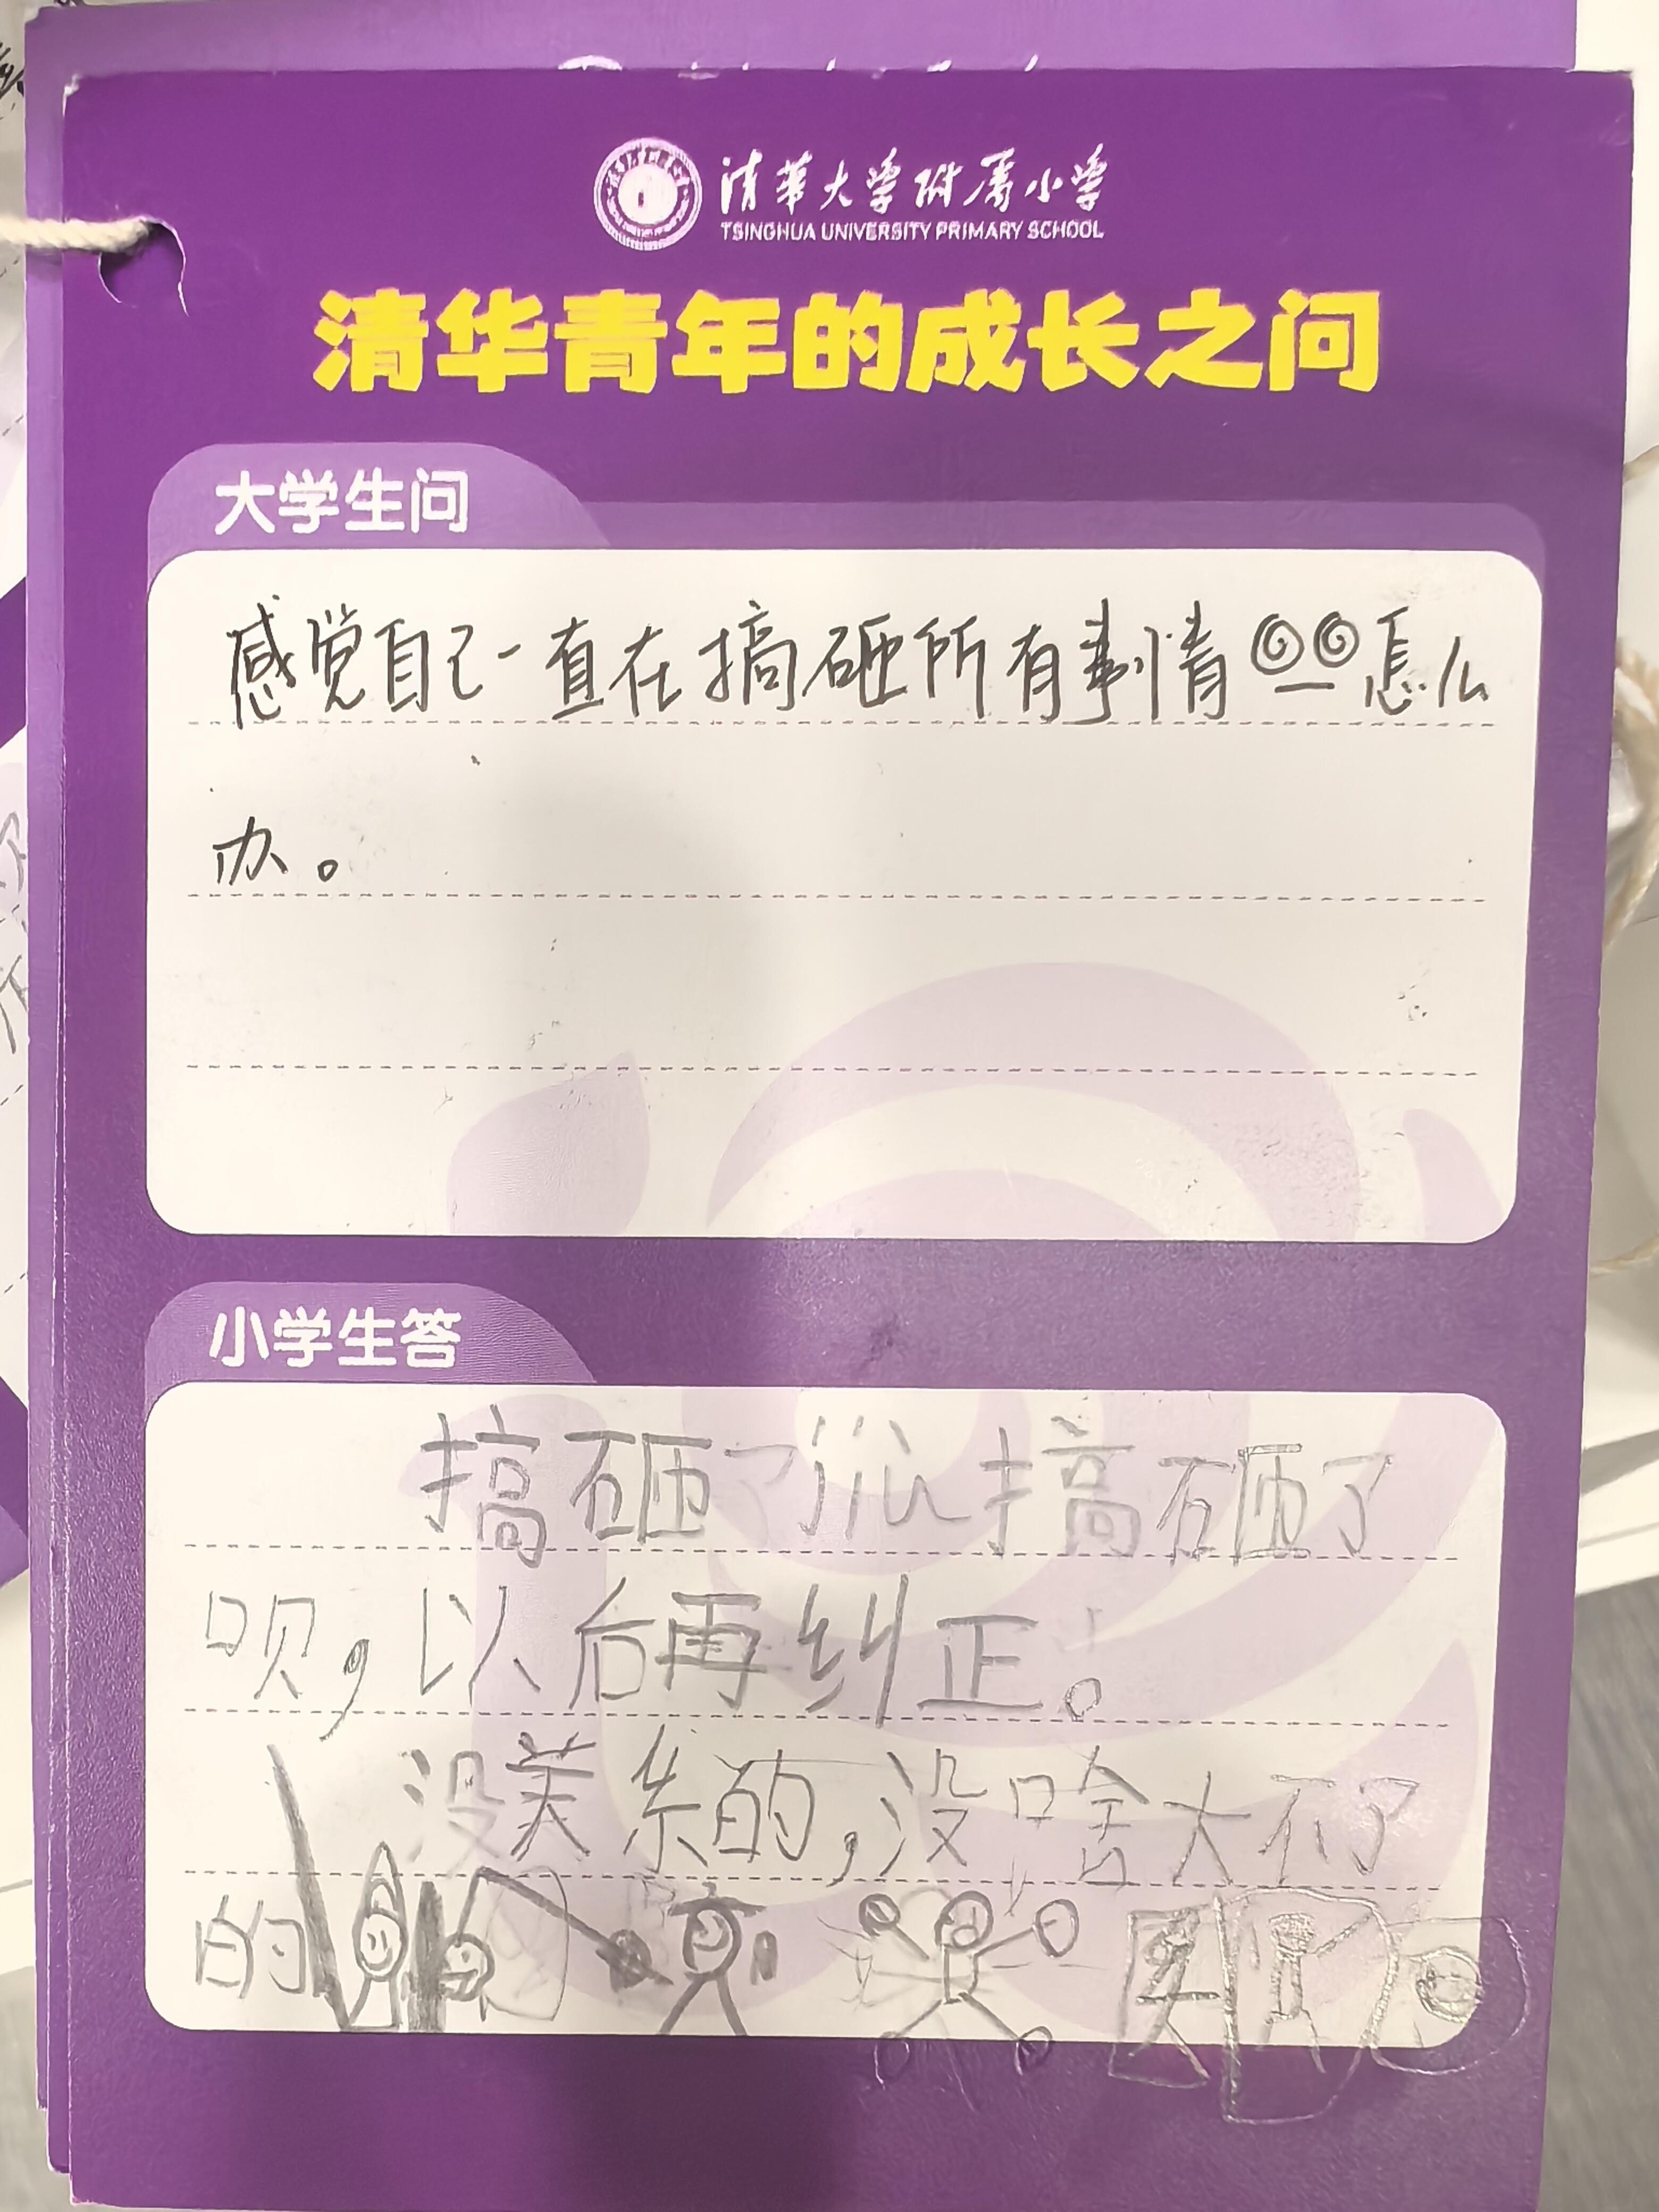 清华大学附属小学
TSINGHUA UNIVERSITY PRIMARY SCHOOL
清华青年的成长之问
大学生问
感觉自己一直在搞砸所有事情怎么
办。
小学生答
搞砸了就搞砸了
呗，以后再纠正。
没关系的，没啥大不了
的